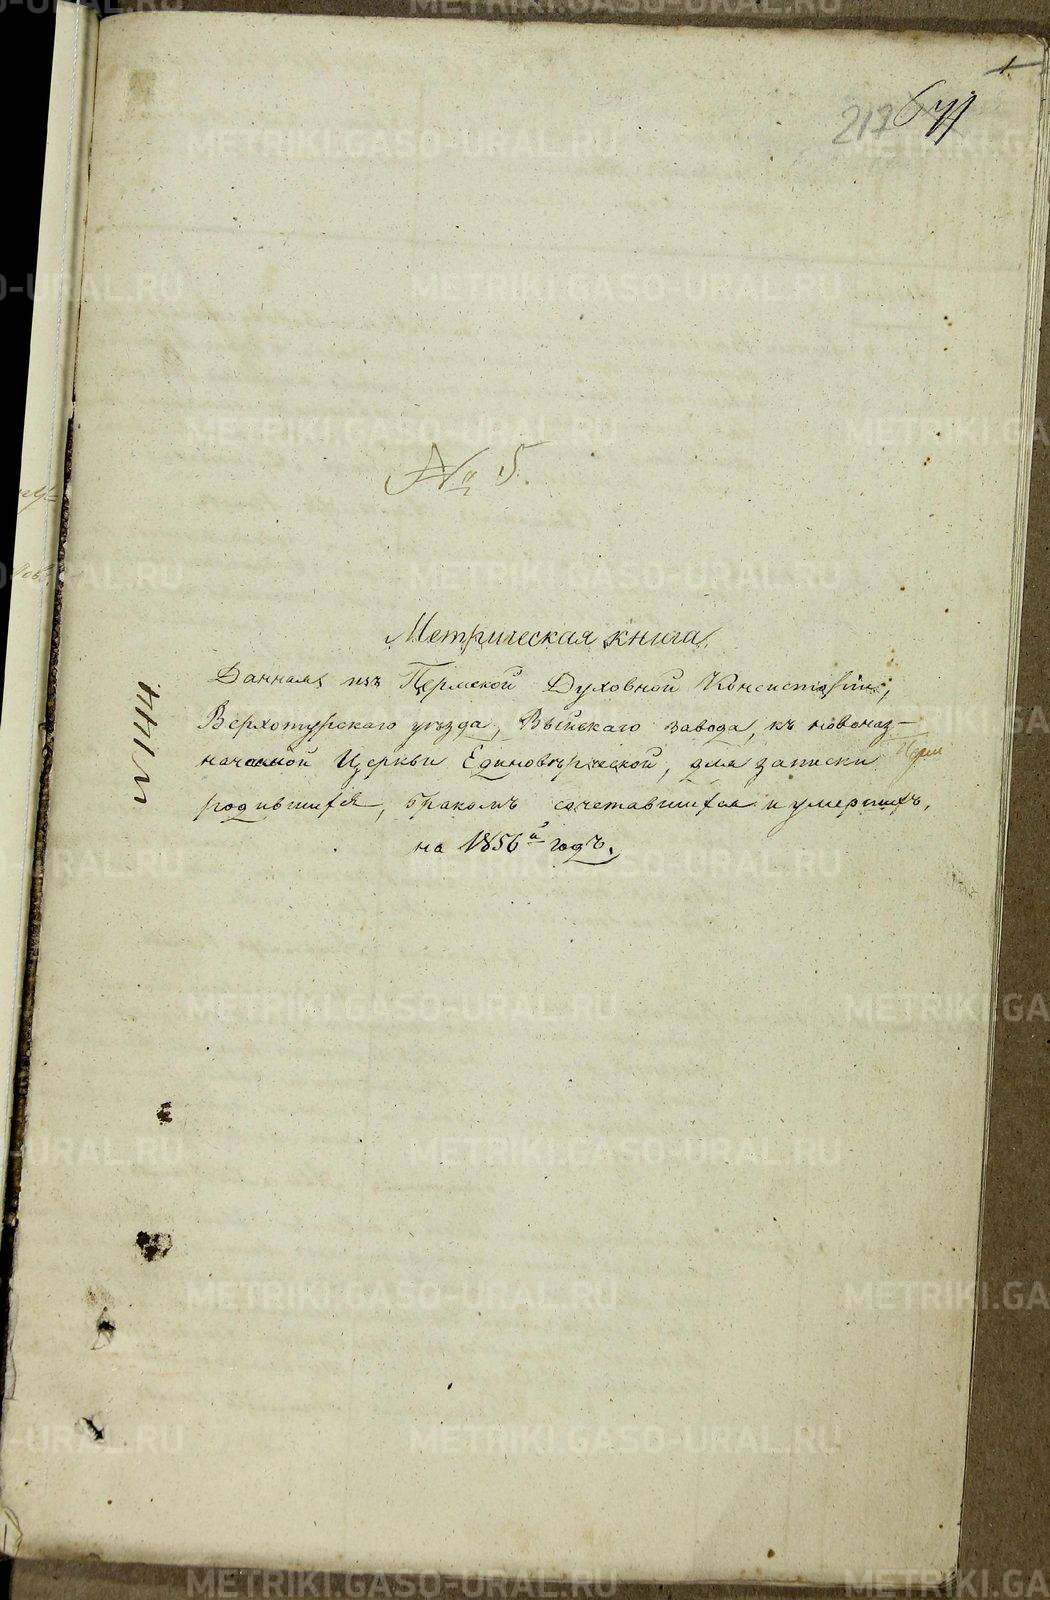 1
217
№ 5.
Метрическая книга,
Данная изъ Пермской Духовной Консисторіи,
Верхотурскаго уѣзда, Выйскаго завода, къ новоназ-
наченной Церкви Единовѣрческой, для записки
родившихся, бракомъ сочетавшихся и умершихъ,
на 1856й годъ.
METRIKI.GASO-URAL.RU